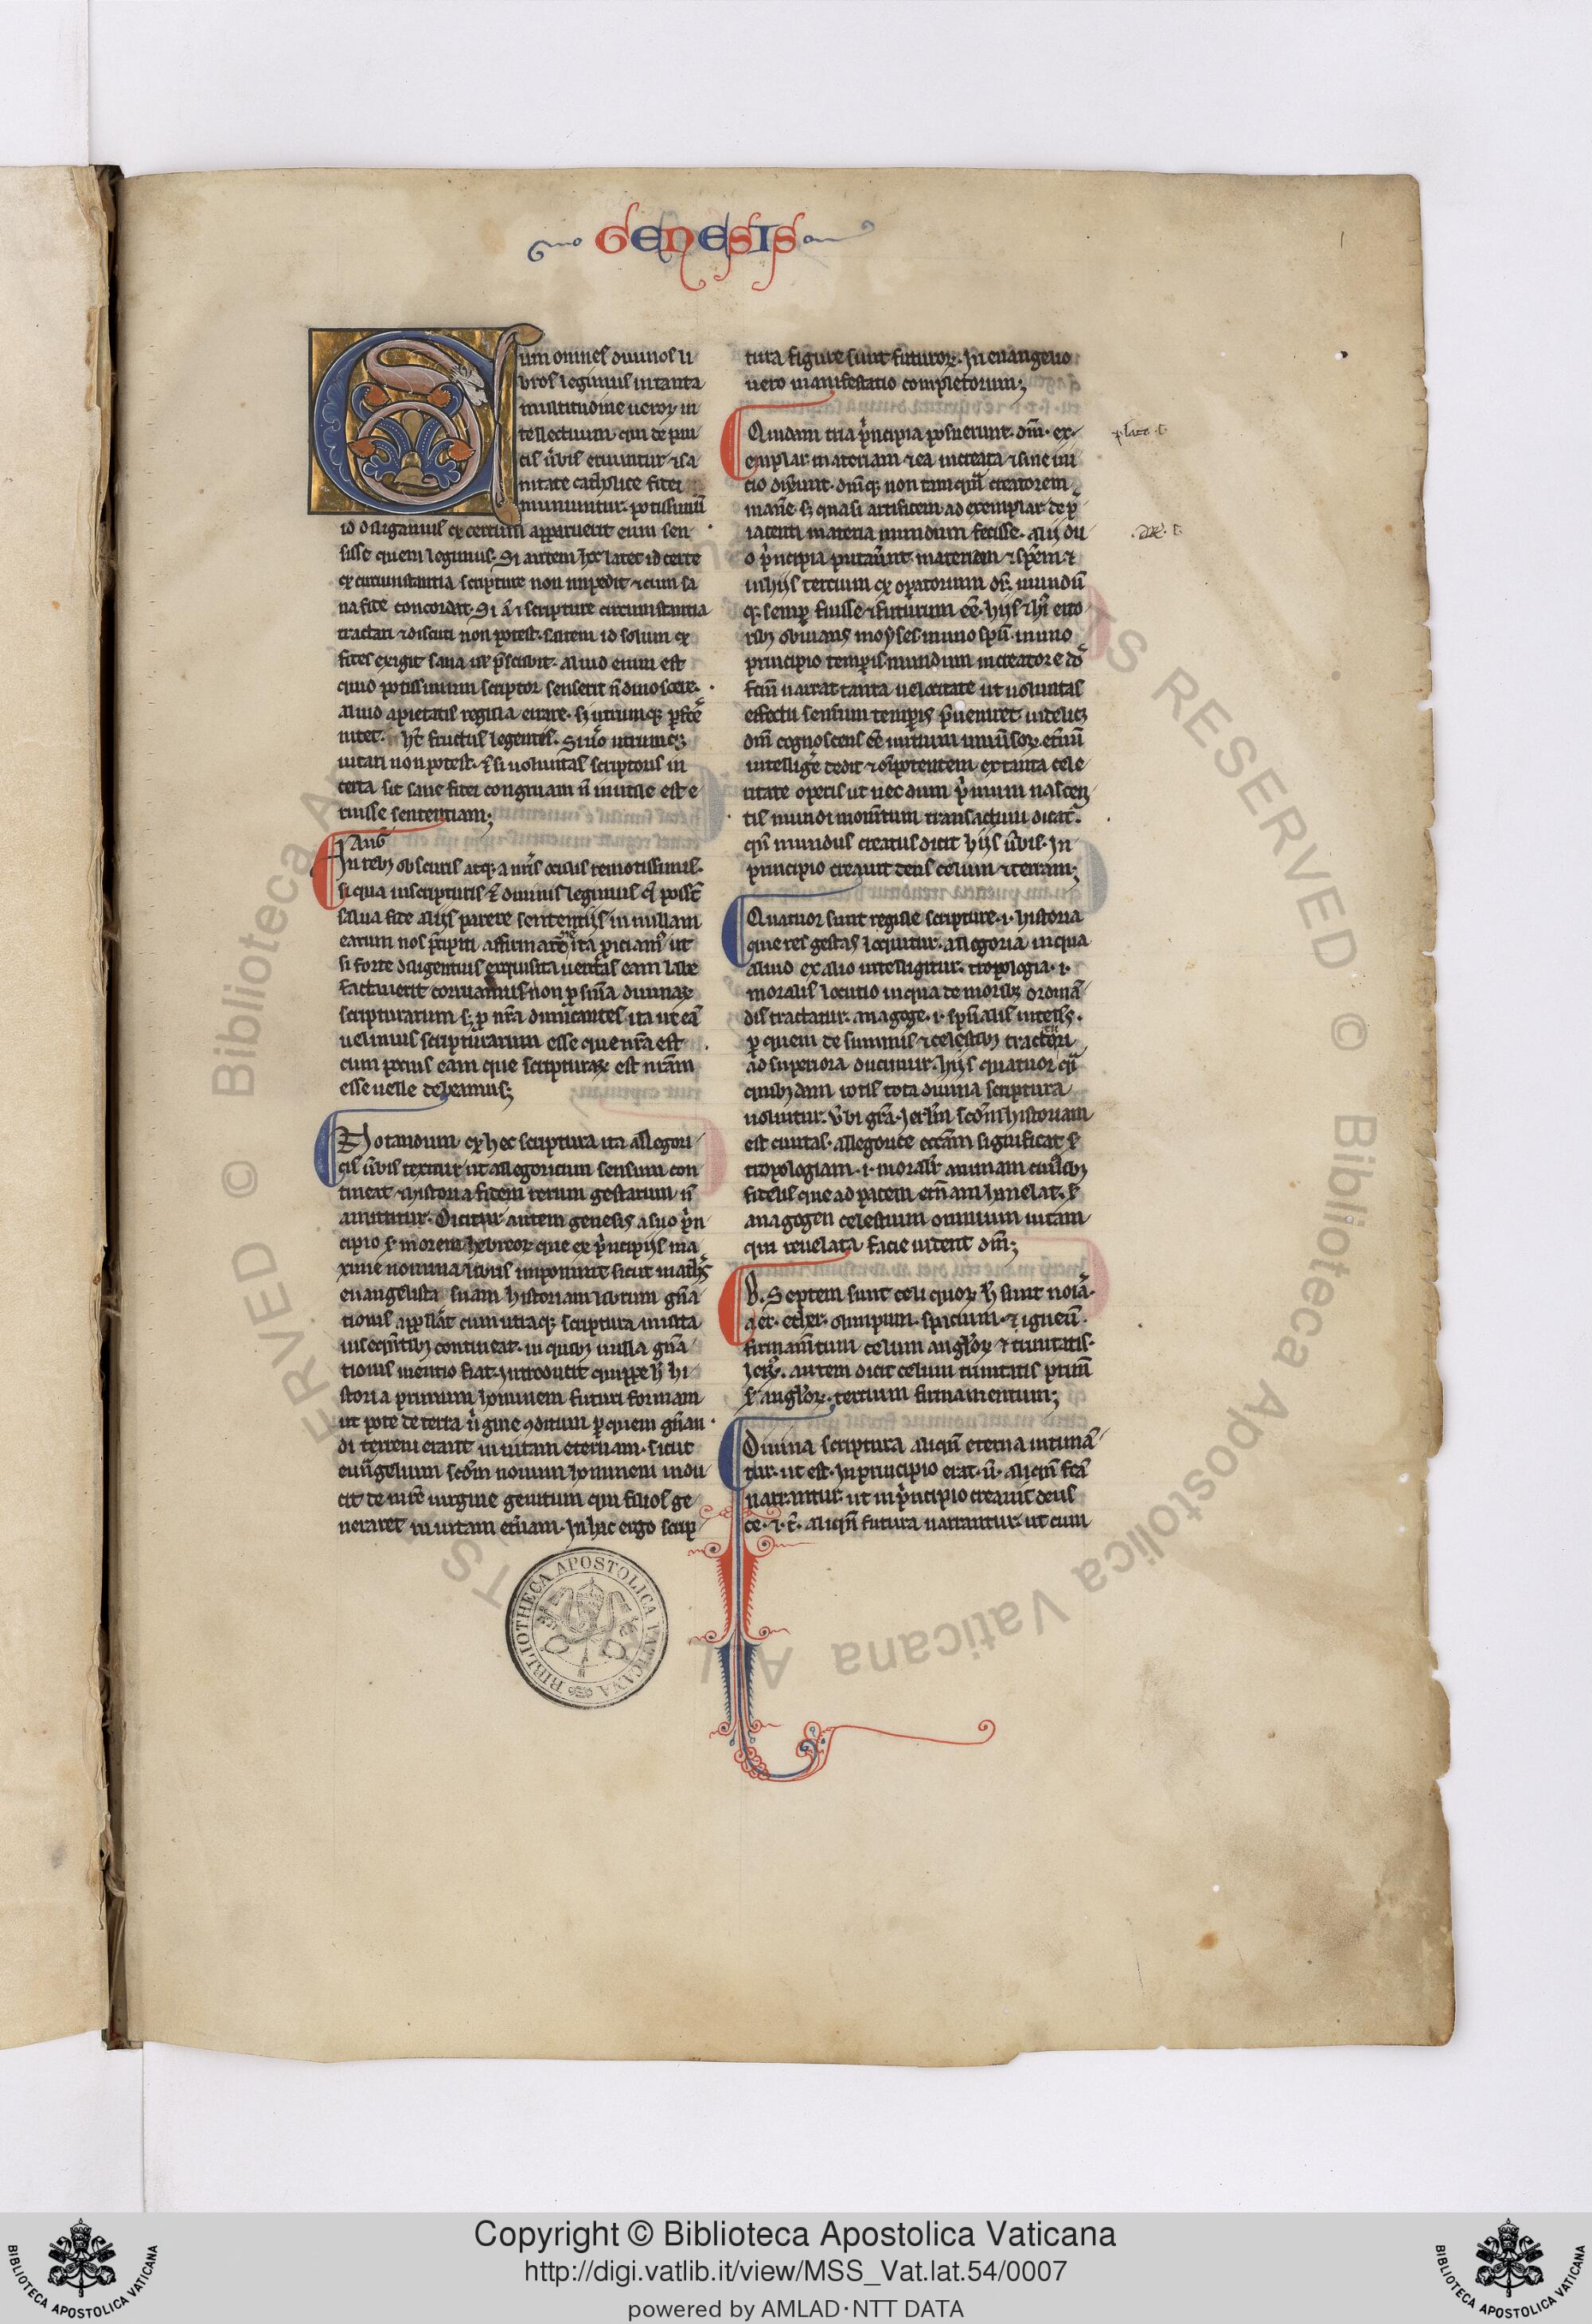 GENESIS
1
Cum omnes diuinos li
bros legimus in tanta
multitudine ueroꝝ in
tellectuum qui de pau
cis ũbis eruuntur ⁊ sa
nitate catholice fidei
muniuntur. potissimũ
id diligamus qđ certum apparuerit eum sen
sisse quem legimus. Si autem hoc latet id certe
qđ circumstantia scripture non impedit ⁊ cum sa
na fide concordat. Si ã ⁊ scripture circumstantia
tractari ⁊ discuti non potest. saltem id solum qđ
fides exigit sana
aliud enim est
quid potissimum scriptor senserit ñ dinoscere.
aliud a pietatis regula errare. si utrumqꝫ
uitet. fructus legentis. Si ũo utrumqꝫ
uitari non potest. si uoluntas scriptoris in
certa sit sane fidei congruam ñ inutile est e
ruisse sententiam;
Aug̃
In rebꝫ obscuris atqꝫ a nr̃is oculis remotissimis.
si qua inscripturis diuinis legimus
salua fide alijs parere sententijs in nullam
earum nos p̃cipiti affirmatõe ita ꝓiciamꝰ ut
si forte diligentius exquisita ueritas eam labe
factauerit corruamus. non ꝓ sñia diuinaꝝ
scripturarum sꝫ ꝓ nr̃a dimicantes ita ut eã
uelimus scripturarum esse que nr̃a est
cum potius eam que scripturaꝝ est nr̃am
esse uelle debeamus;
Notandum qđ hec scriptura ita allegori
cis ũbis texitur ut allegoricum sensum con
tineat ⁊ historia fidem rerum gestarum ñ
amittitur. Dicitur autem genesis a suo p̃n
cipio morem hebreoꝝ que ex p̃ncipijs ma
xime nomina libris imponunt sicut mathꝰ
euangelista suam historiam librum gñã
tionis appllãt cum utraqꝫ scriptura multa
in seqũtibꝫ contineat. in quibꝫ nulla gñã
tionis mentio fiat. Introducit quippe hi
storia primum hominem futuri formam
ut pote de terra ũgine ꝯditum ꝑ quem gñan
di terreni erant in uitam eternam. sicut
euñgelium scdm nouum hominem indu
cit de mr̃e uirgine genitum qui filios ge
neraret in uitam etñam. In hac ergo scrip
tura figure sunt futuroꝝ. In euangelio
uero manifestatio completorum;
Quidam tria p̃ncipia posuerunt. dm̃. ex
emplar. materiam ⁊ ea increata ⁊ sine ini
cio dixerunt. dm̃qꝫ non tamquã creatorem
sꝫ quasi artificem ad exemplar de p̃
iacenti materia mundum fecisse. alij du
o p̃ncipia putauerunt. materiam ⁊ spẽm ⁊
in hijs tercium qđ opatorium dr̃. mundũ
qꝫ semꝑ fuisse ⁊ futurum eẽ. hijs ⁊ hĩ erro
ribꝫ obuians moyses in uno spũ. in uno
principio tempis mundum in creatore dõ
fcm̃ narrat tanta uelocitate ut uoluntas
effectu sensum tempis p̃ueniret. uidelicꝫ
dm̃ cognoscens eẽ
intelligẽ dedit ⁊ om̃ipotentem. ex tanta cele
ritate operis ut nec dum p̃mum nascen
tis mundi mom̃tum transactum dicat̃.
qñ mundus creatus dicit hijs ũbis. In
principio creauit deus celum ⁊ terram;
Quatuor sunt regule scripture. i. historia
que res gestas loquitur. allegoria in qua
aliud ex alio intelligitur. tropologia. i.
moralis locutio in qua de moribꝫ ordinã
dis tractatur. anagoge. i. spũalis intells̃.
ꝑ quem de summis ⁊ celestibꝫ tractaturi
ad superiora ducimur. hijs quatuor q̃i
quibꝫdam rotis tota diuina scriptura
uoluitur. Ũbi gr̃a. Ierlm̃ scdm̃ historiam
est ciuitas. allegorice ecc̃am significat.
tropologiam. i. moralr̃ animam cuiꝰlibꝫ
fidelis que ad pacem etñam hanelat.
anagogen celestium omnium uitam
qui reuelata facie uident dm̃;
B. Septem sunt celi quoꝝ sunt noĩa.
aer. ether. olimpum. spacium. ⁊ igneũ.
firmam̃tum. celum anglõꝝ ⁊ trinitatis.
autem dicit celum trinitatis primũ
anglõꝝ. tercium firmamentum;
Diuina scriptura aliqñ eterna intimã
tur. ut est. In principio erat. ũ. aliqñ fcã
narrantur. ut in p̃ncipio creauit deus
ce. ⁊. t̃. aliqñ futura narrantur. ut cum
plato
BIBLIOTHECA APOSTOLICA VATICANA
© Biblioteca Apostolica Vaticana
RESERVED © Biblioteca Apostolica Vaticana
Copyright © Biblioteca Apostolica Vaticana
http://digi.vatlib.it/view/MSS_Vat.lat.54/0007
powered by AMLAD·NTT DATA
BIBLIOTECA APOSTOLICA VATICANA
BIBLIOTECA APOSTOLICA VATICANA